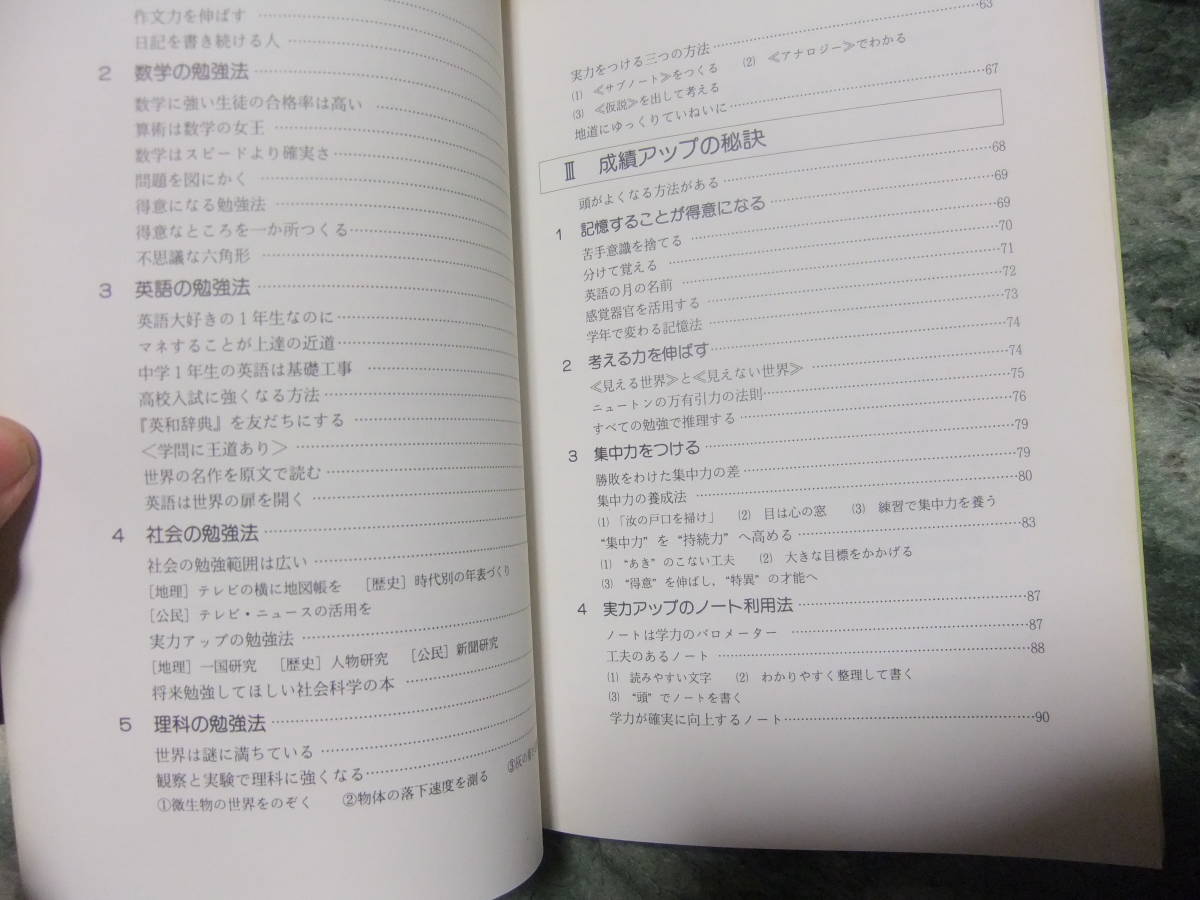 作文力を伸ばす
日記を書き続ける人
2 数学の勉強法
数学に強い生徒の合格率は高い
算術は数学の女王
数学はスピードより確実さ
問題を図にかく
得意になる勉強法
得意なところを一か所つくる
不思議な六角形
3 英語の勉強法
英語大好きの1年生なのに
マネすることが上達の近道
中学1年生の英語は基礎工事
高校入試に強くなる方法
『英和辞典』を友だちにする
＜学問に王道あり＞
世界の名作を原文で読む
英語は世界の扉を開く
4 社会の勉強法
社会の勉強範囲は広い
［地理］テレビの横に地図帳を ［歴史］時代別の年表づくり
［公民］テレビ・ニュースの活用を
実力アップの勉強法
［地理］一国研究 ［歴史］人物研究 ［公民］新聞研究
将来勉強してほしい社会科学の本
5 理科の勉強法
世界は謎に満ちている
観察と実験で理科に強くなる
①微生物の世界をのぞく ②物体の落下速度を測る
63
実力をつける三つの方法
⑴ ≪サブノート≫をつくる ⑵ ≪アナロジー≫でわかる
⑶ ≪仮説≫を出して考える
地道にゆっくりていねいに 67
Ⅲ 成績アップの秘訣
頭がよくなる方法がある 68
1 記憶することが得意になる 69
苦手意識を捨てる 69
分けて覚える 70
英語の月の名前 71
感覚器官を活用する 72
学年で変わる記憶法 73
2 考える力を伸ばす 74
≪見える世界≫と≪見えない世界≫ 74
ニュートンの万有引力の法則 75
すべての勉強で推理する 76
3 集中力をつける 79
勝敗をわけた集中力の差 79
集中力の養成法 80
⑴「汝の戸口を掃け」 ⑵ 目は心の窓 ⑶ 練習で集中力を養う
“集中力”を“持続力”へ高める 83
⑴ “あき”のこない工夫 ⑵ 大きな目標をかかげる
⑶ “得意”を伸ばし，“特異”の才能へ
4 実力アップのノート利用法 87
ノートは学力のバロメーター 87
工夫のあるノート 88
⑴ 読みやすい文字 ⑵ わかりやすく整理して書く
⑶ “頭”でノートを書く
学力が確実に向上するノート 90